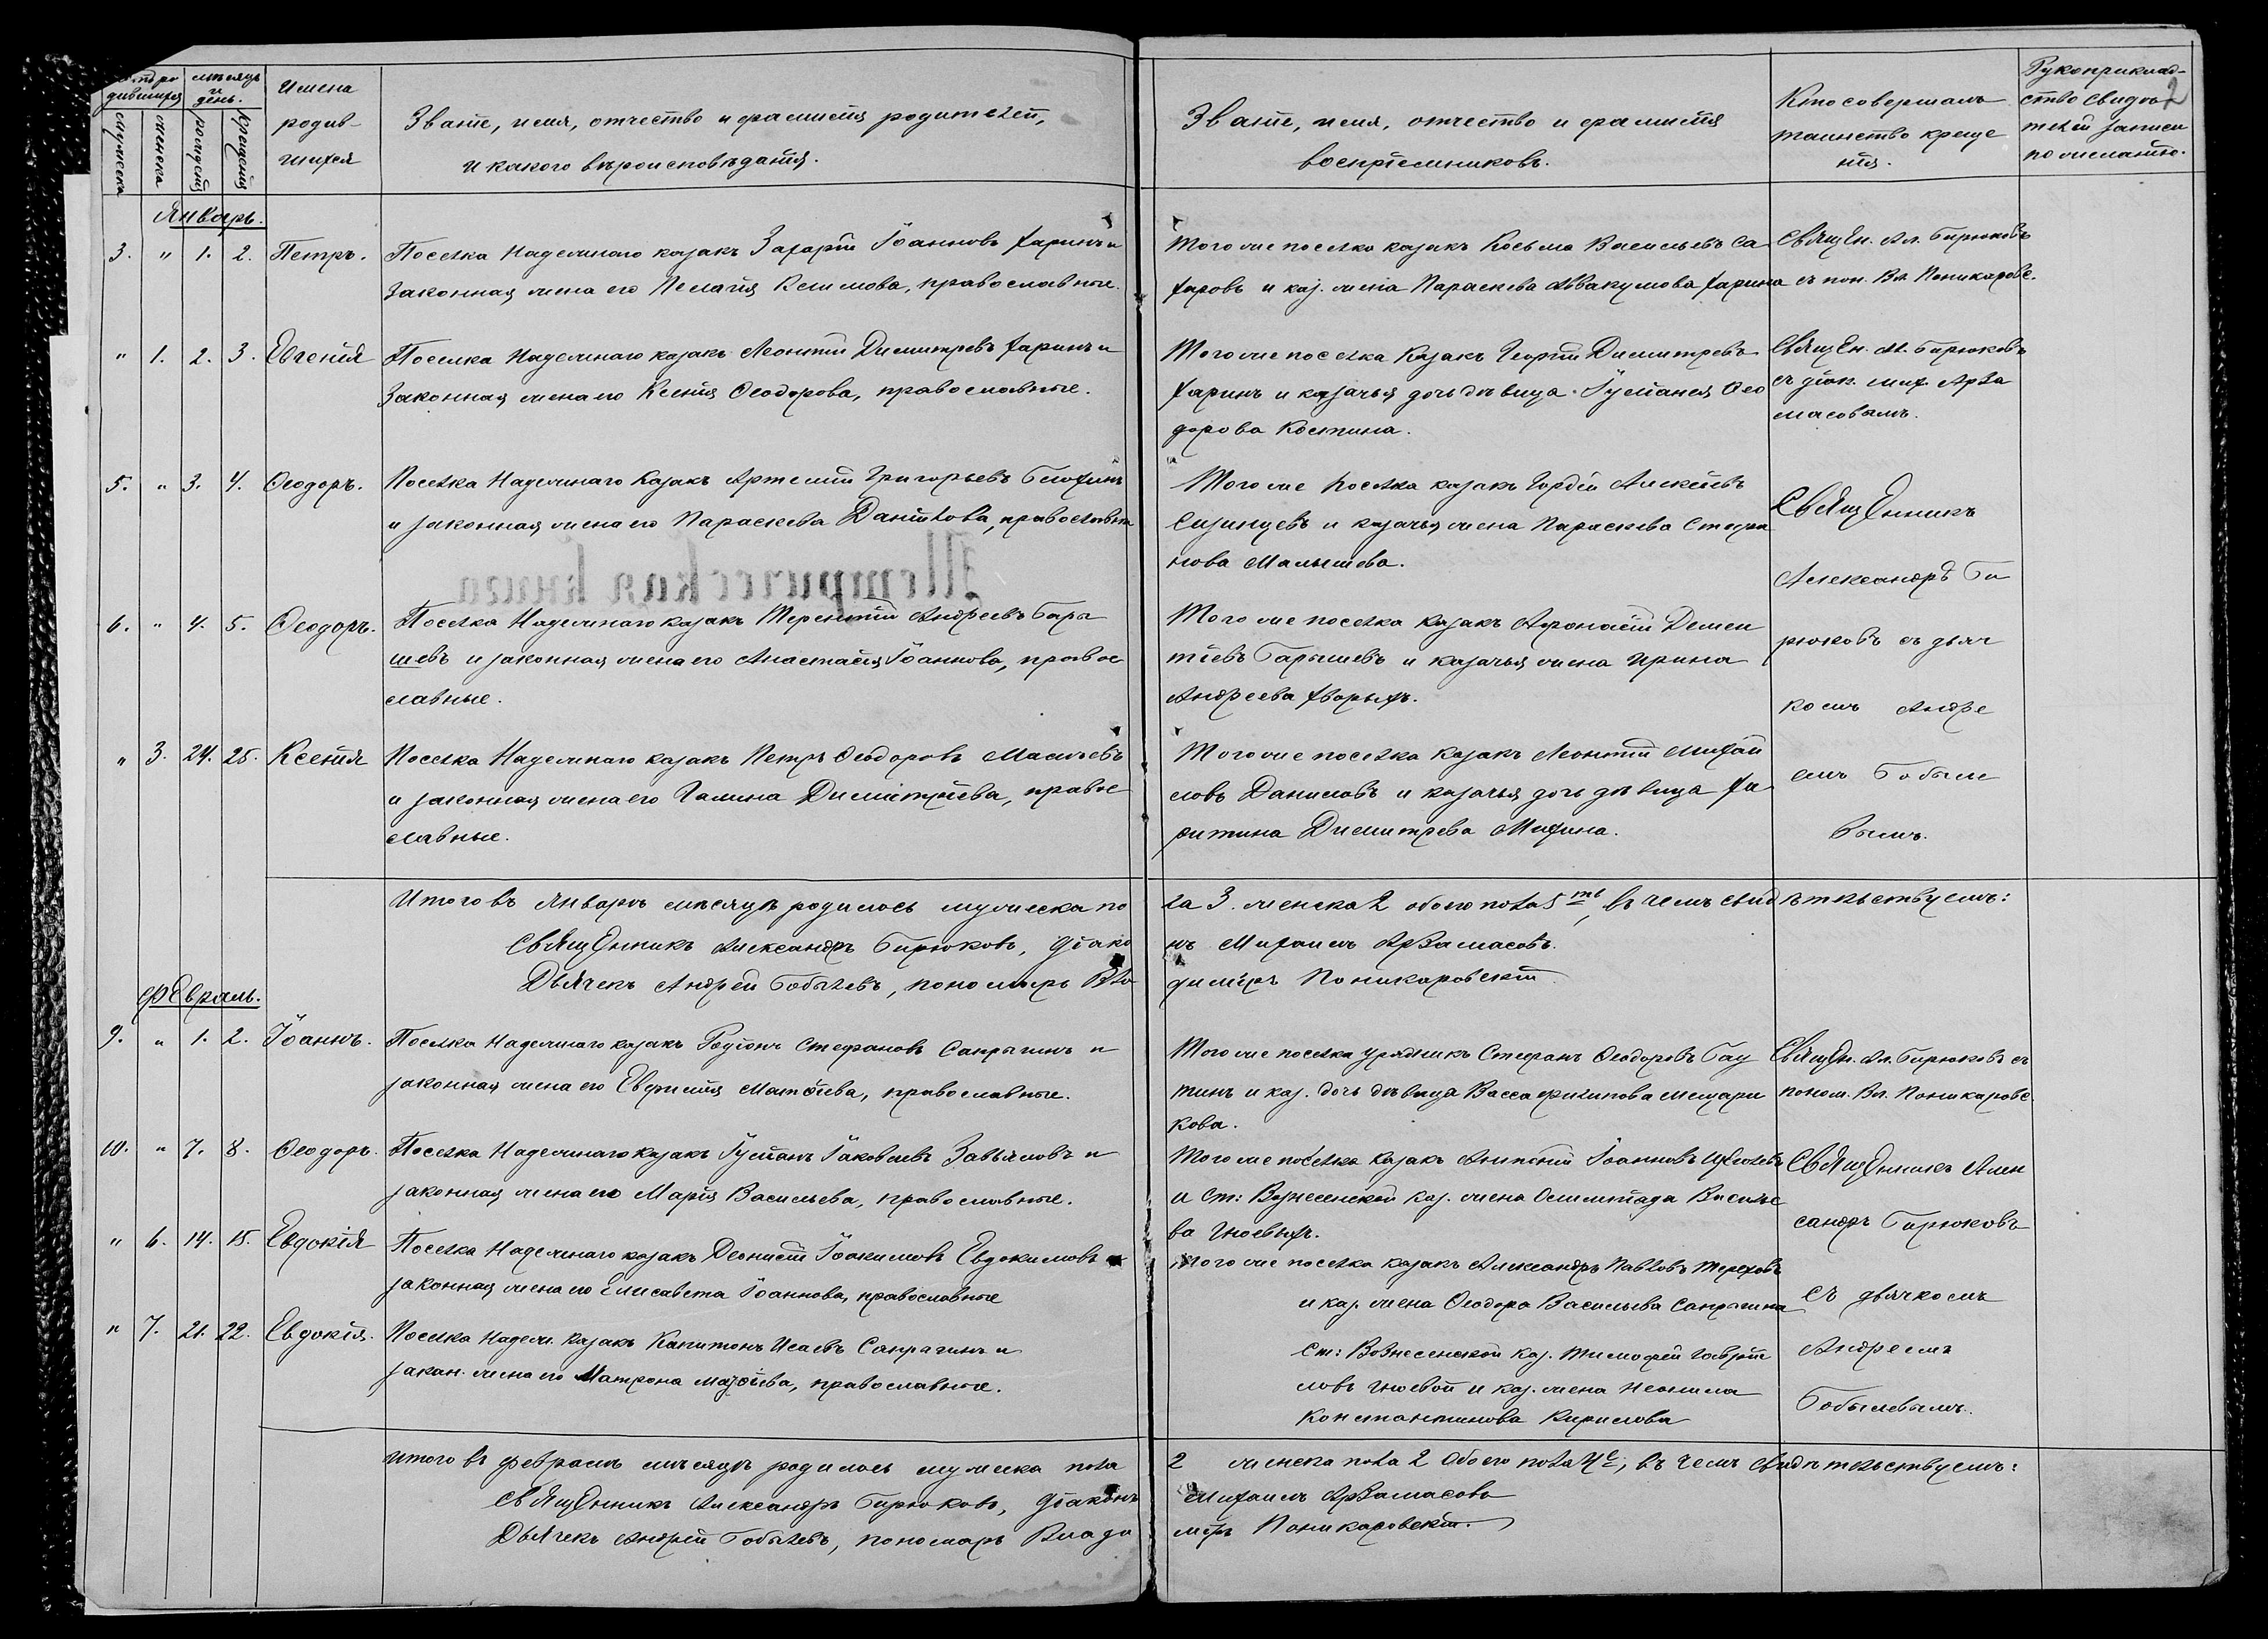 дившихся
мѣсяцъ
и
день.
мужеска
женска
рожденія
крещенія
Имена
родив-
шихся
Званіе, имя, отчество и фамилія родителей,
и какого вѣроисповѣданія.
Званіе, имя, отчество и фамилія
воспріемниковъ.
Кто совершалъ
таинство креще
нія.
Рукоприклад-
ство свидѣ
телей записи
по желанію.
2
Январь.
3. " 1. 2. Петръ. Поселка Надежинаго казакъ Захарій Іоанновъ Харинъ и
законная жена его Пелагія Климова, православные.
Того же поселка казакъ Косьма Васильевъ Са
харовъ и каз. жена Параскева Аввакумова Харина
Священ. Ал. Бирюковъ
съ пон. Вл. Поникаровс.
" 1. 2. 3. Евгенія Поселка Надежинаго казакъ Леонтій Димитріевъ Харинъ и
законная жена его Ксенія Ѳеодорова, православные.
Того же поселка казакъ Георгій Димитріевъ
Харинъ и казачья дочь дѣвица Іуліанея Ѳео
дорова Костина.
Священ. Ал. Бирюковъ
съ діак. Мих. Арза
масовымъ.
5. " 3. 4. Ѳеодоръ. Поселка Надежинаго казакъ Артемій Григорьевъ
и законная жена его Параскева Данилова, православные
Того же поселка казакъ Гордѣй Алексѣевъ
Сизинцевъ и казачья жена Параскева Стефа
нова Малышева.
Священникъ
Александръ Би
рюковъ съ дьяч
комъ Андре
емъ Бобыле
вымъ.
Метрическая книга
6. " 4. 5. Ѳеодоръ. Поселка Надежинаго казакъ Терентій Андреевъ Бары
шевъ и законная жена его Анастасія Іоаннова, правос
славные.
Того же поселка казакъ Афонасій Демен
тіевъ Барышевъ и казачья жена Ирина
Андреева Хворыхъ.
" 3. 24. 25. Ксенія Поселка Надежинаго казакъ Петръ Ѳеодоровъ
и законная жена его Галина Димитріева, правос
славные.
Того же поселка казакъ Леонтій Михаи
ловъ Даниловъ и казачья дочь дѣвица Ха
ритина Димитрева Михина.
Итого въ Январѣ мѣсяцѣ родилось мужеска по
ла 3. женска 2 обоего пола 5ть, въ чемъ свидѣтельствуемъ:
Священникъ Александръ Бирюковъ, Діако
нъ Михаилъ Арзамасовъ.
Дьячекъ Андрей Бобылевъ, пономарь Вла
диміръ Поникаровскій
Февраль.
9. " 1. 2. Іоаннъ. Поселка Надежинаго казакъ Родіонъ Стефановъ Сапрыгинъ и
законная жена его Евфимія Матѳіева, православные.
Того же поселка урядникъ Стефанъ Ѳеодоровъ
тинъ и каз. дочь дѣвица Васса Филипова Мещари
кова.
Священ. Ал. Бирюковъ съ
поном. Вл. Поникаровс
10. " 7. 8. Ѳеодоръ. Поселка Надежинаго казакъ Іуліанъ Іаковлевъ Завьяловъ и
законная жена его Марія Васильева, православные.
Того же поселка казакъ Іоанновъ
и ст: Вознесенской каз. жена Олимпіада Василье
ва Гноевыхъ.
Священникъ Алек
сандръ Бирюковъ
съ дьячкомъ
Андреемъ
Бобылевымъ.
" 6. 14. 15. Евдокія Поселка Надежинаго казакъ Деонисій Іоакимовъ Евдокимовъ и
законная жена его Елисавета Іоаннова, православные
Того же поселка казакъ Александръ Павловъ Тереховъ
и каз. жена Ѳеодора Васильева Сапрыгина
" 7. 21. 22. Евдокія. Поселка Надеж. казакъ Капитонъ Исаевъ Сапрыгинъ и
закон. жена его Матрона православные.
Ст: Вознесенской каз. Тимофей Гаврии
ловъ Гноевой и каз. жена Неонила
Константинова Кирилова
Итого въ февралѣ мѣсяцѣ родилось мужеска пола
2 женска пола 2 обоего пола 4е, въ чемъ свидѣтельствуемъ:
Священникъ Александръ Бирюковъ, Діаконъ
Михаилъ Арзамасовъ
Дьячекъ Андрей Бобылевъ, пономарь Влади
міръ Поникаровскій.